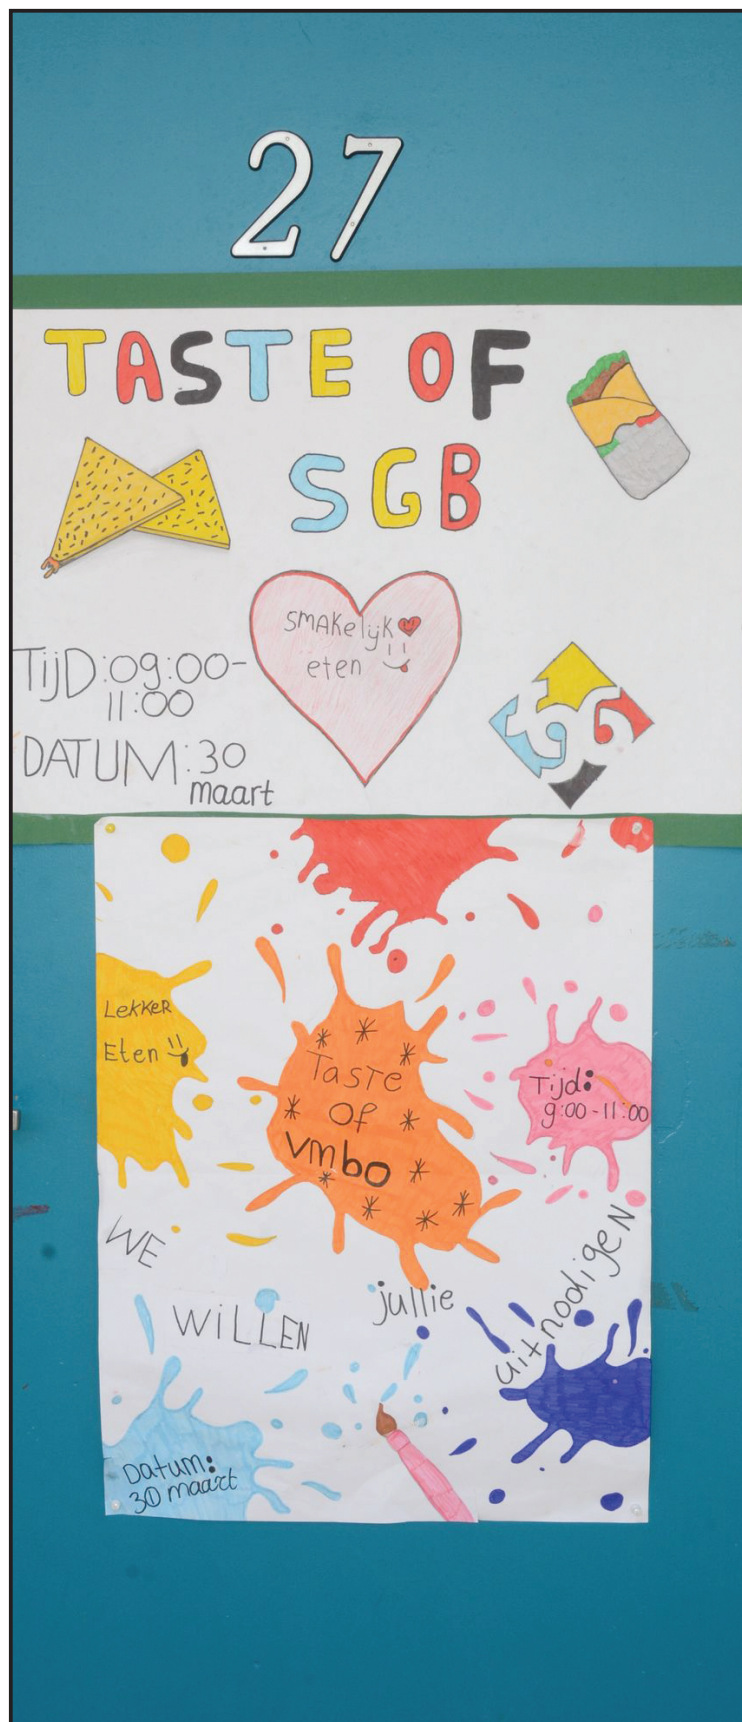 27
TASTE OF
SGB
SMAKelijk
eten
TIJD:09:00-
11:00
DATUM:30
maart
Lekker
Eten
Taste
Of
vmbo
Tijd:
9:00-11:00
WE
WILLEN
jullie
uitnodigen
Datum:
30 maart